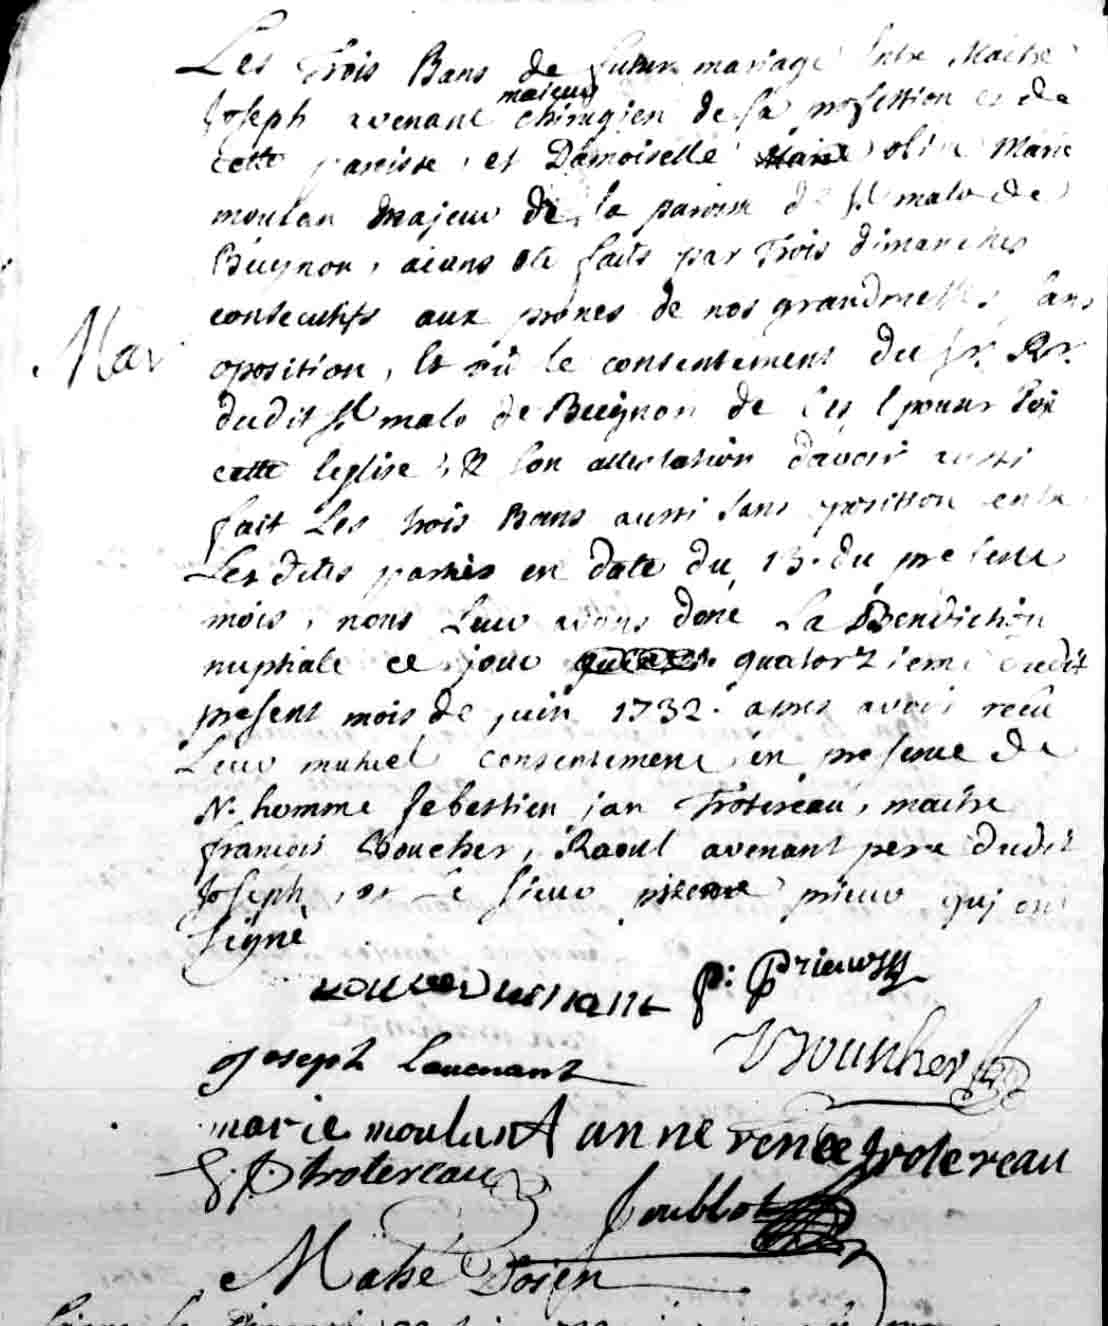 Les Trois Bans de futur mariage Entre Maitre
majeur
Joseph avenant chirugien de sa profession et de
cette paroisse, et Damoiselle Marie olive Marie
moulan Majeur de la paroisse de St malo de
Beignon, aians ete faits par Trois dimanches
consecutifs aux prones de nos grandmesses, sans
Mar
oposition, et vû le consentement du sr. Rr.
dudit St malo de Beignon de les Epouser
cette Eglise, & son attestation davoir aussi
fait Les trois Bans aussi sans oposition entre
Les dites parties en date du 13. du present
mois, nous Leur avons doné La Benediction
nuptiale ce jour quatorzieme dudit
present mois de juin 1732. apres avoir recu
Leur mutuel consentement en presence de
N. homme sebestien jan Trotereau, maitre
francois Boucher, Raoul avenant pere dudit
Joseph, et Le sieur pierre prieur qui ont
signé
avenant P: Prieur
Joseph Lavenant Bouscher
marie moulan Anne renée trotereau
S: J trotereau
Joubbot
Mahé